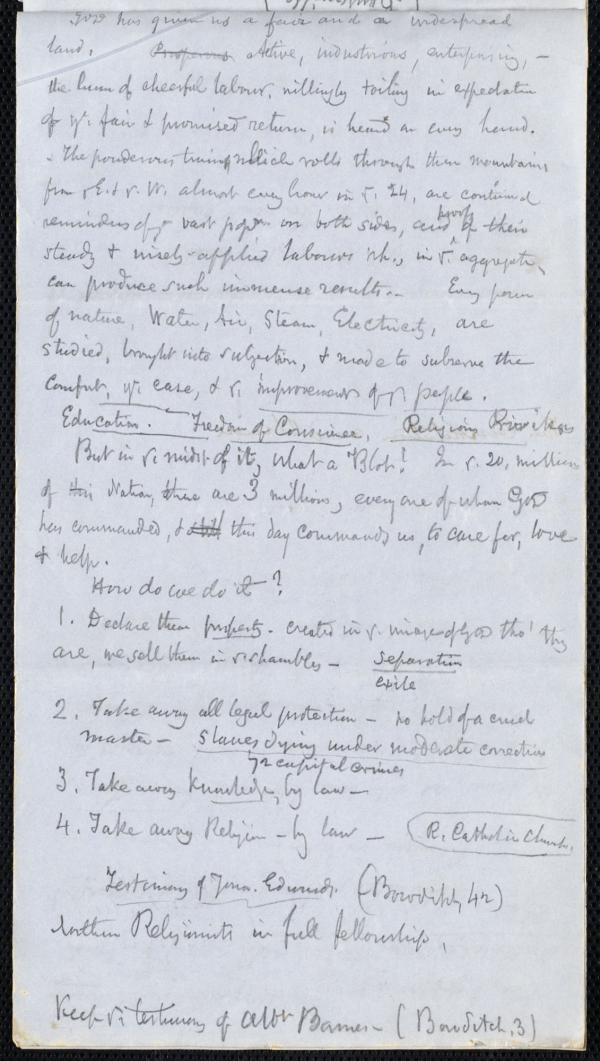 God has given us a fair and a widespread
land. Prosperous active, industrious, enterprising, –
the hum of cheerful labour, willingly toiling in expectation
of ye fair & promised return, is heard on every hand.
The ponderous trains which rolls through these mountains
from E. & W. almost every hour in ye 24, are continual
reminders of ye vast popn on both sides, and proofs of their
steady & wisely-applied labours wh., in ye aggregate,
can produce such immense results. – Every power
of nature, Water, Air, Steam, Electricity, are
studied, brought into subjection, & made to subserve the
comfort, ye ease, & ye improvement of ye people.
Education. Freedom of Conscience, Religious Privileges
But in ye midst of it, what a Blot! In ye 20, millions
of this Nation, there are 3 millions, every one of whom God
has commanded, & still this day commands us, to care for, love
& help.
How do we do it?
1. Declare them property. created in ye image of God tho' they
are, we sell them in ye shambles – separation
exile
2. Take away all legal protection – no hold of a cruel
master – slaves dying under moderate correction
72 capital crimes
3. Take away knowledge, by law –
4. Take away Religion – by law – R. Catholic Church.
Testimony of Jona. Edwards. (Bowditch, 42)
Northern Religionists in full fellowship,
Keep ye testimony of Albt Barnes – (Bowditch, 3)